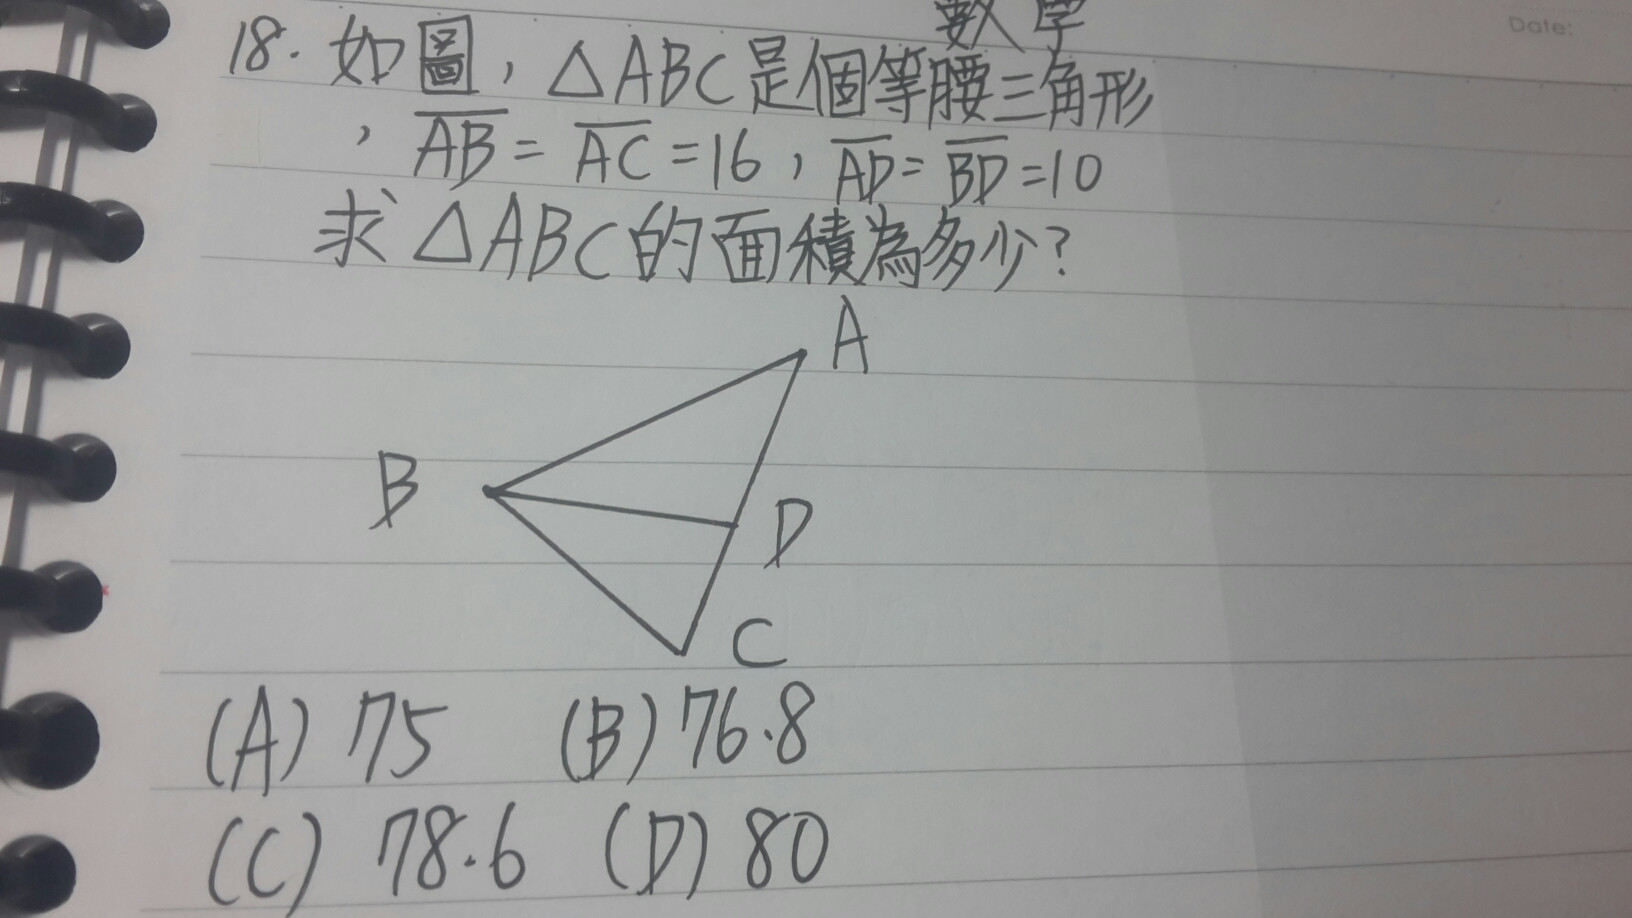 數學
Date:
18. 如圖，△ABC是個等腰三角形
，AB = AC =16，AD= BD =10
求△ABC的面積為多少？
A
B
D
C
(A) 75 (B) 76.8
(C) 78.6 (D) 80